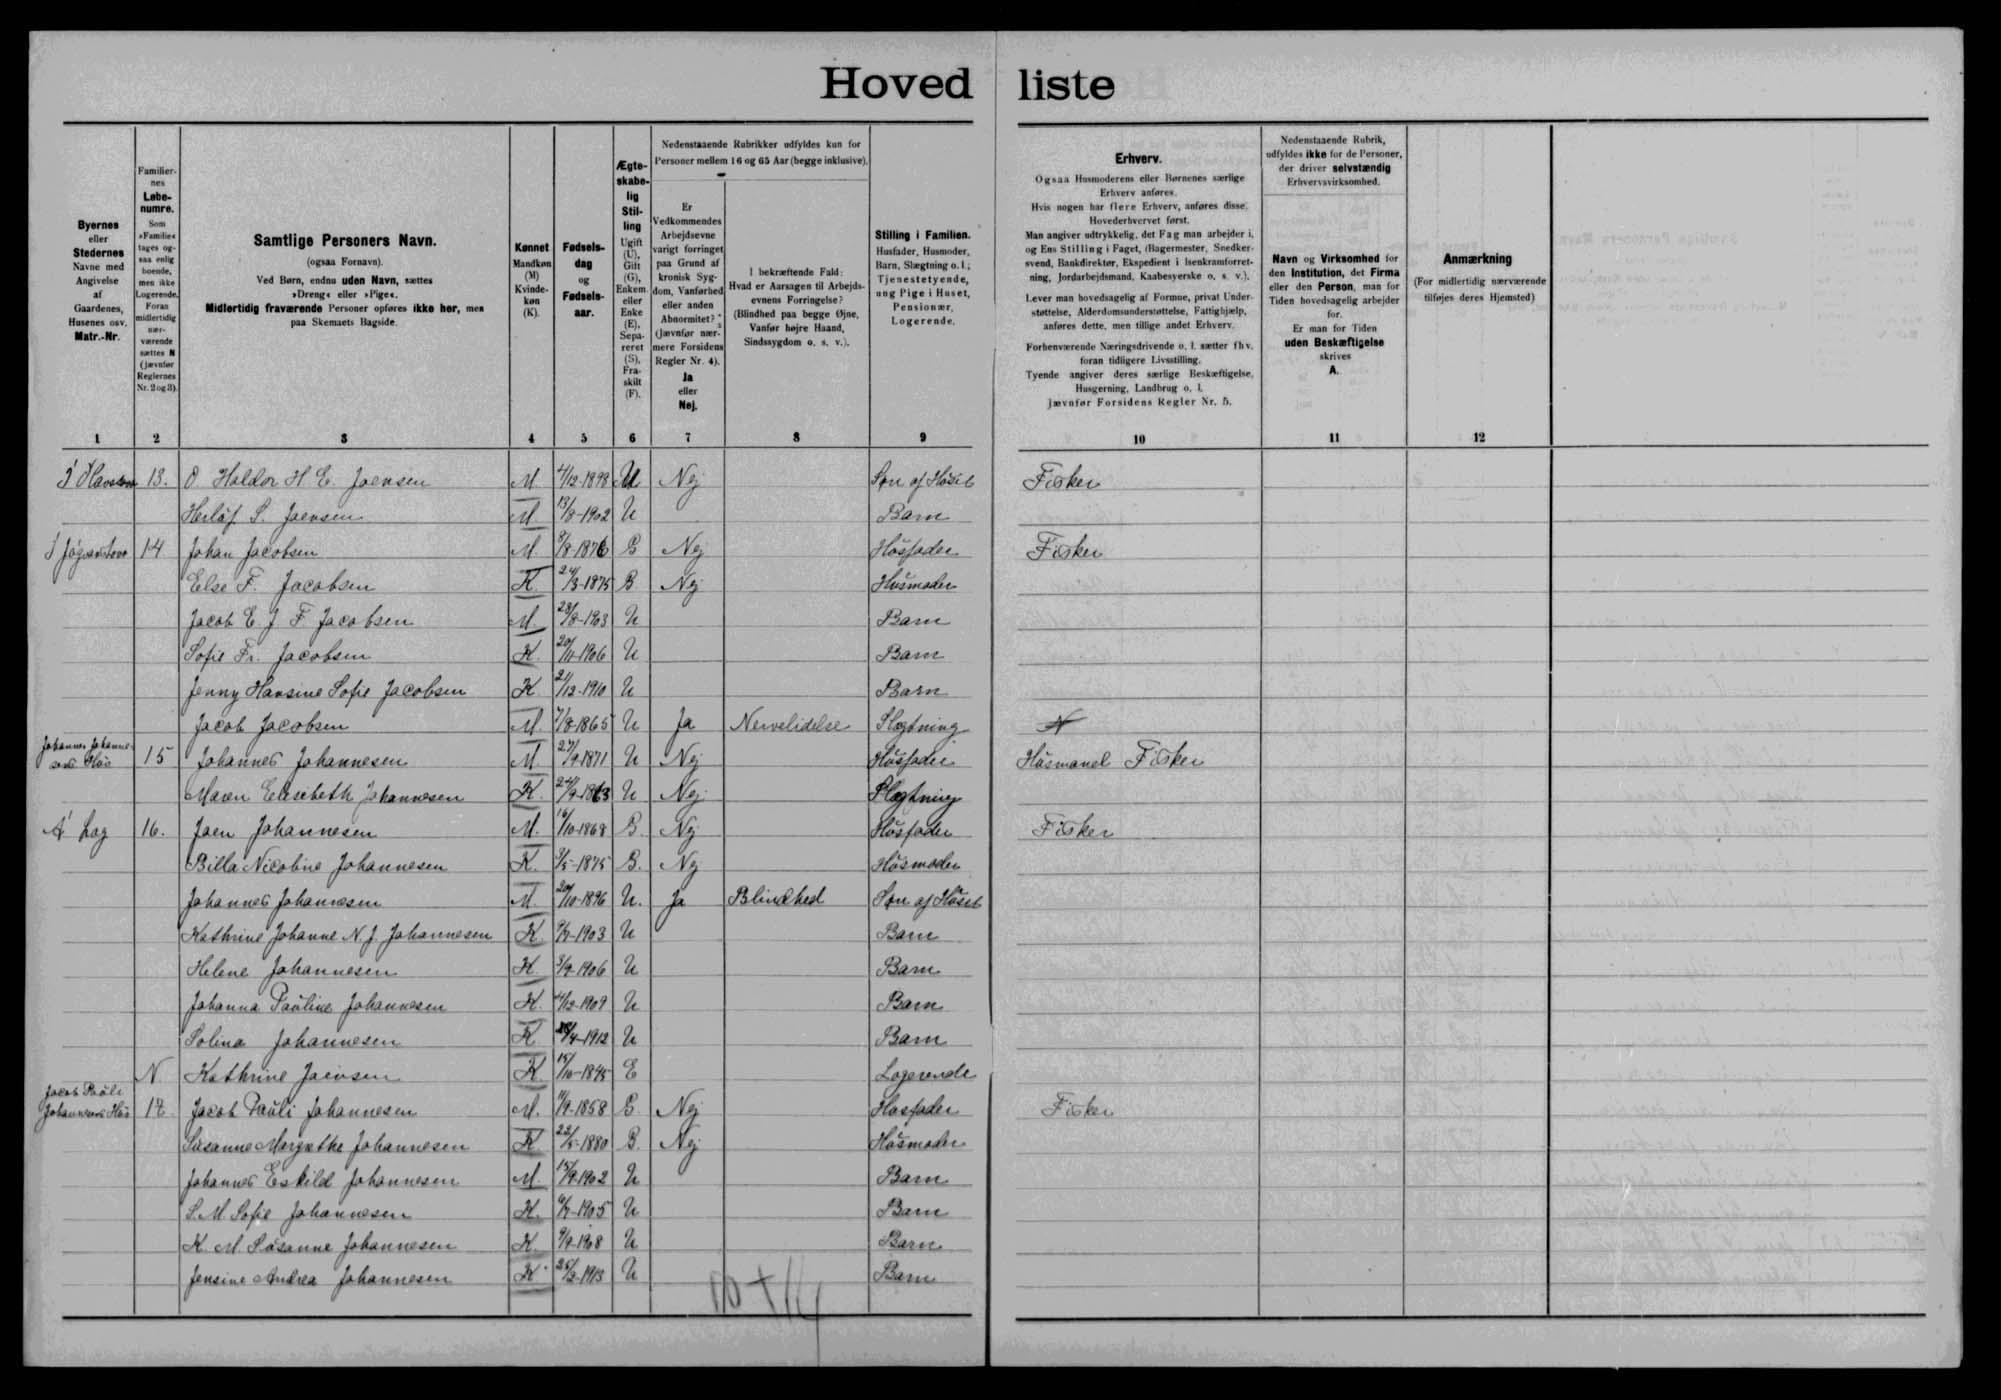 Hoved liste
Byernes eller Stedernes Navne med Angivelse af Gaardenes, Husenes osv. Matr.-Nr.
Familiernes Løbenumre. Som »Familie« tages ogsaa enlig boende, men ikke Logerende. Foran midlertidig nærværende sættes N (jævnfør Reglernes Nr. 2 og 3).
Samtlige Personers Navn.
(ogsaa Fornavn).
Ved Børn, endnu uden Navn, sættes
»Dreng« eller »Pige«.
Midlertidig fraværende Personer opføres ikke her, men
paa Skemaets Bagside.
Kønnet Mandkøn (M) Kvindekøn (K).
Fødselsdag og Fødselsaar.
Ægteskabelig Stilling Ugift (U), Gift (G), Enkemand eller Enke (E), Separeret (S), Fraskilt (F).
Nedenstaaende Rubrikker udfyldes kun for
Personer mellem 16 og 65 Aar (begge inklusive).
Er Vedkommendes Arbejdsevne varigt forringet paa Grund af kronisk Sygdom, Vanførhed eller anden Abnormitet? (Jævnfør nærmere Forsidens Regler Nr. 4). Ja eller Nej.
I bekræftende Fald: Hvad er Aarsagen til Arbejdsevnens Forringelse? (Blindhed paa begge Øjne, Vanfør højre Haand, Sindssygdom o. s. v.).
Stilling i Familien.
Husfader, Husmoder, Barn, Slægtning o. l.; Tjenestetyende, ung Pige i Huset, Pensionær, Logerende.
Erhverv.
Ogsaa Husmoderens eller Børnenes særlige
Erhverv anføres.
Hvis nogen har flere Erhverv, anføres disse.
Hovederhvervet først.
Man angiver udtrykkelig, det Fag man arbejder i,
og Ens Stilling i Faget, (Bagermester, Snedkersvend, Bankdirektør, Ekspedient i Isenkramforretning, Jordarbejdsmand, Kaabesyerske o. s. v.).
Lever man hovedsagelig af Formue, privat Understøttelse, Alderdomsunderstøttelse, Fattighjælp,
anføres dette, men tillige andet Erhverv.
Forhenværende Næringsdrivende o. l. sætter fhv.
foran tidligere Livsstilling.
Tyende angiver deres særlige Beskæftigelse,
Husgerning, Landbrug o. l.
Jævnfør Forsidens Regler Nr. 5.
Nedenstaaende Rubrik,
udfyldes ikke for de Personer,
der driver selvstændig
Erhvervsvirksomhed.
Navn og Virksomhed for
den Institution, det Firma
eller den Person, man for
Tiden hovedsagelig arbejder
for.
Er man for Tiden
uden Beskæftigelse
skrives
A.
Anmærkning
(For midlertidig nærværende
tilføjes deres Hjemsted)
1 2 3 4 5 6 7 8 9 10 11 12
13. O. Haldor H E. Joensen M 4/12-1898 U Nej Søn af Húset Fisker
Herlúf S. Joensen M 13/8-1902 U Barn
14 Johan Jacobsen M. 9/8-1876 G Nej Húsfader Fisker
Else F. Jacobsen K. 24/3-1875 G Nej Húsmoder
Jacob E. J F Jacobsen M. 28/8-1903 U Barn
Sofie Fr. Jacobsen K. 20/11-1906 U Barn
Jenny Hansine Sofie Jacobsen K. 21/12-1910 U Barn
Jacob Jacobsen M. 7/8-1865 U Ja Nervelidelse Slægtning N
Johannes Johannesens Hús 15 Johannes Johannesen M. 27/9-1871 U Nej Húsfader Húsmand Fisker
Maren Elisabeth Johannesen K. 24/9-1863 U Nej Slægtning
Á Lag 16. Joen Johannesen M. 16/10-1868 G. Nej Húsfader Fisker
Billa Nicoline Johannesen K. 3/5-1875 G. Nej Húsmoder
Johannes Johannesen M. 20/10-1896 U. Ja Blindhed Søn af Húset
Kathrine Johanne N. J. Johannesen K 9/7-1903 U Barn
Helene Johannesen K. 3/9-1906 U Barn
Johanna Paúline Johannesen K. 4/12-1909 U Barn
Solina Johannesen K /4-1912 U Barn
N. Kathrine Joensen K. 15/10-1845 E Logerende
Jacob Paúli Johannesens Hús 17. Jacob Paúli Johannesen M. 11/9-1858 G. Nej Húsfader Fisker
Súsanne Margrethe Johannesen K. 22/5-1880 G. Nej Húsmoder
Johannes Eskild Johannesen M. 15/9-1902 U Barn
S. M. Sofie Johannesen K. 6/7-1905 U Barn
K. M. Súsanne Johannesen K. 9/9-1908 U Barn
Jensine Andrea Johannesen K 25/2-1913 U Barn
10+14